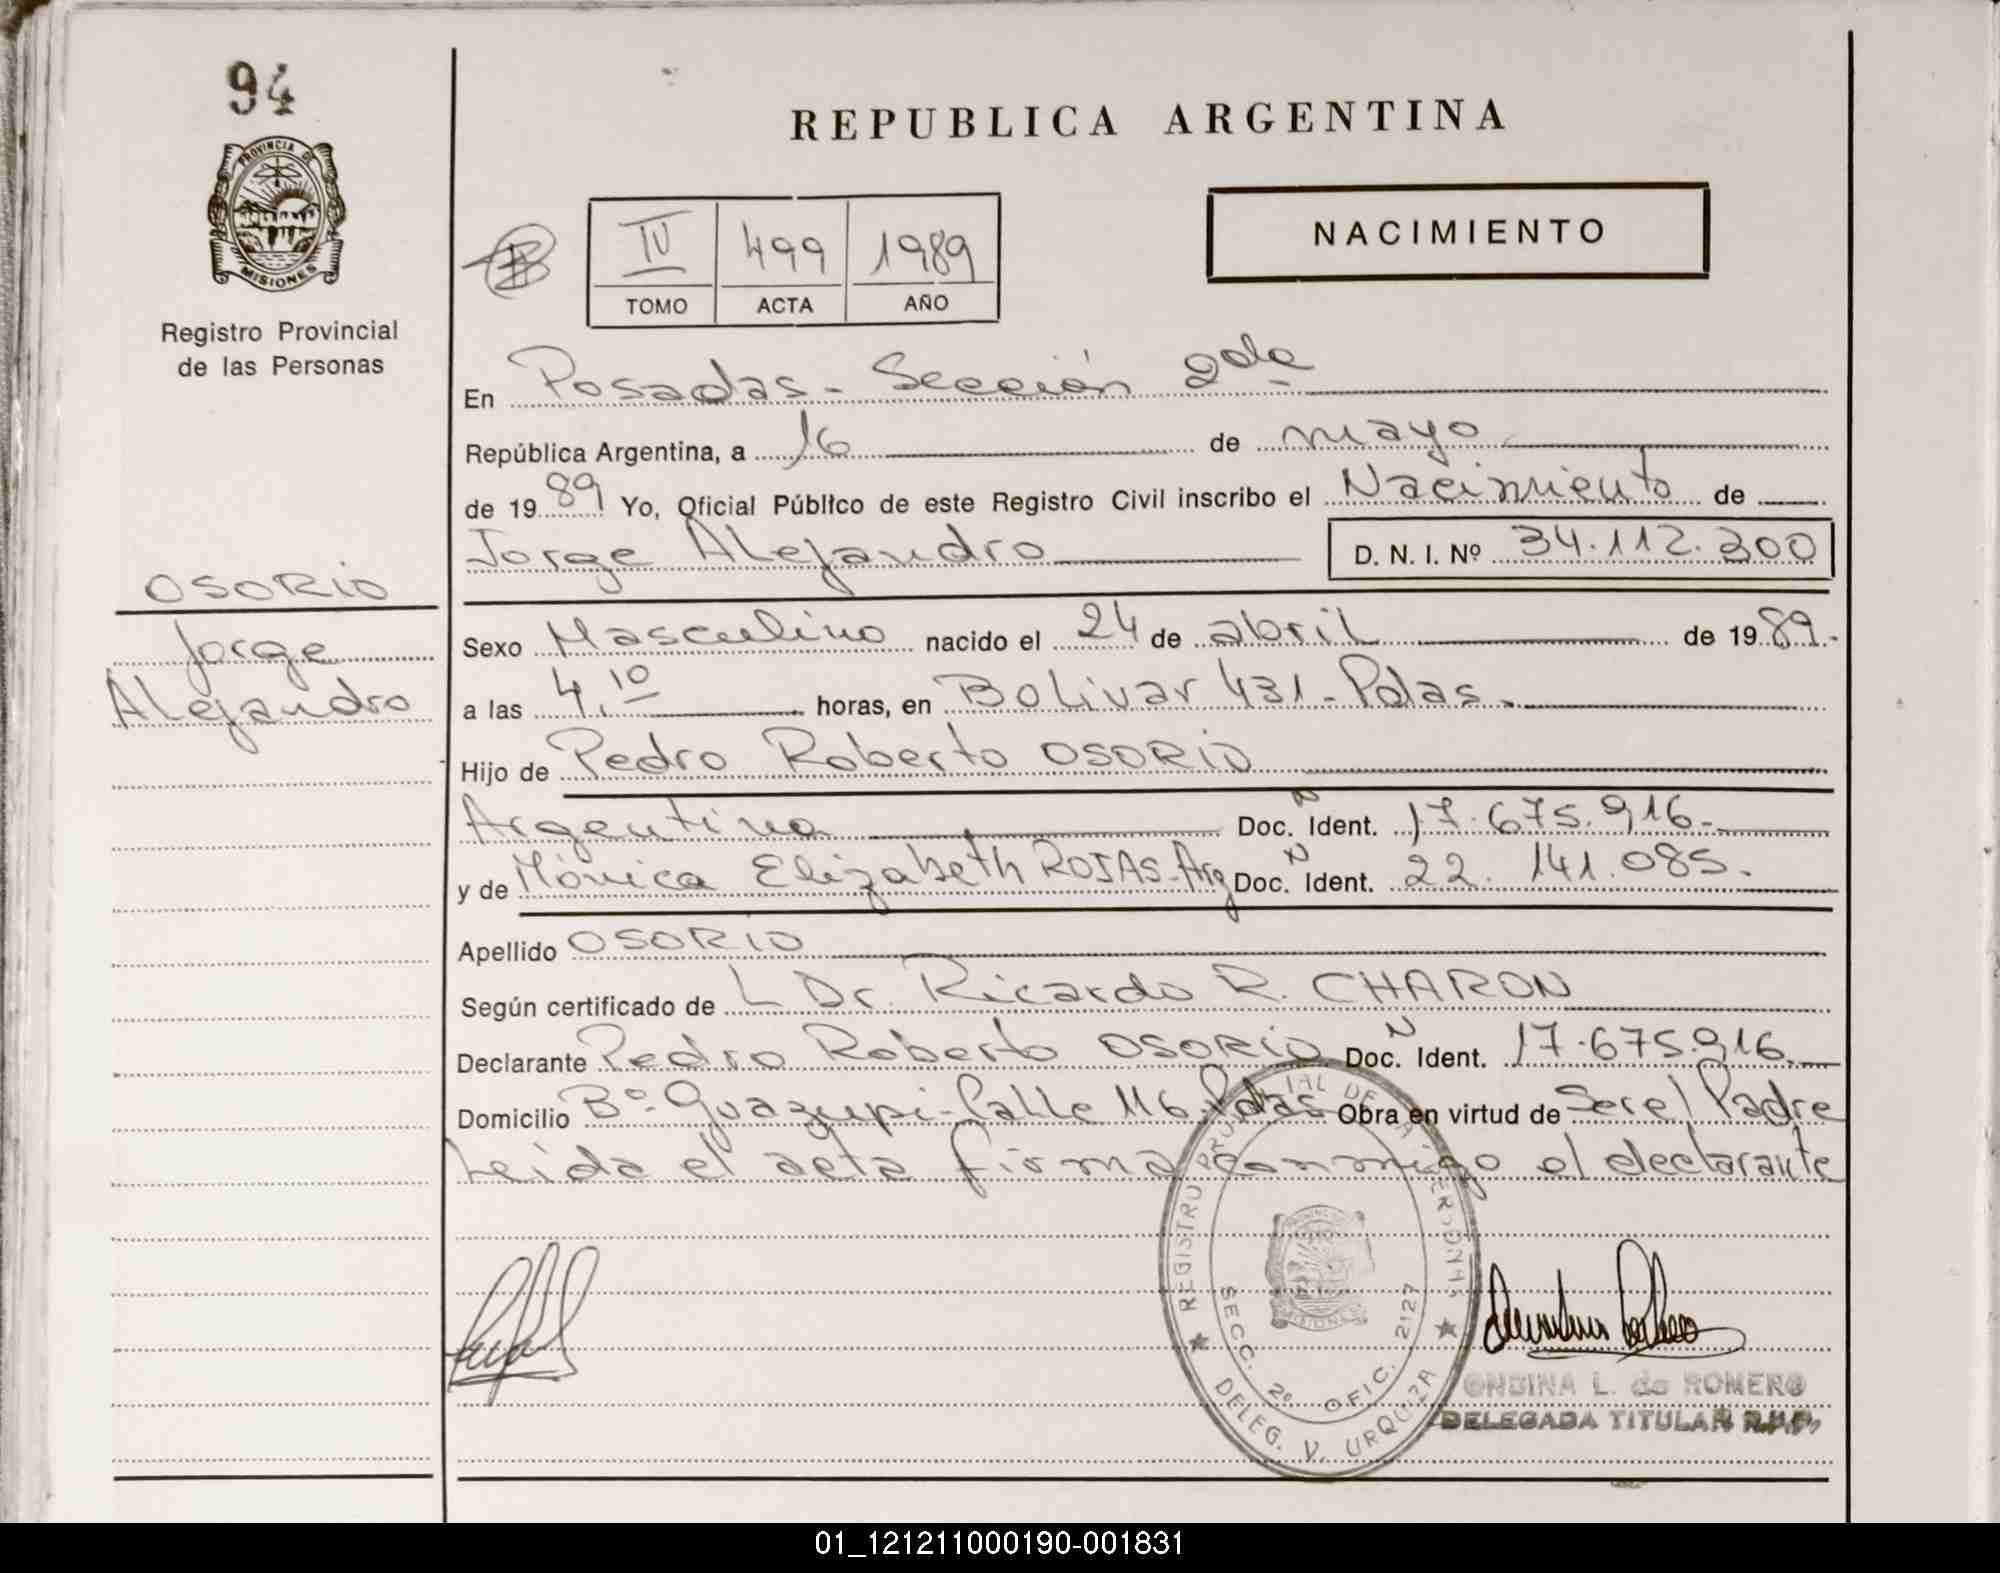 94
PROVINCIA DE
MISIONES
Registro Provincial
de las Personas
OSORIO
Jorge
Alejandro
REPUBLICA ARGENTINA
NACIMIENTO
IV 499 1989
TOMO ACTA AÑO
En Posadas - Sección 2da
República Argentina, a 16 de mayo
de 1989 Yo, Oficial Público de este Registro Civil inscribo el Nacimiento de
Jorge Alejandro D. N. I. Nº 34.112.300
Sexo Masculino nacido el 24 de abril de 1989.
a las 4,10 horas, en Bolivar 431 - Pdas.
Hijo de Pedro Roberto OSORIO
Argentina Doc. N Ident. 17.675.916.
y de Mónica Elizabeth ROJAS - Arg Doc. N Ident. 22.141.085.
Apellido OSORIO
Según certificado de L Dr. Ricardo R. CHARON
Declarante Pedro Roberto OSORIO Doc. N Ident. 17.675.916.
Domicilio Bº. Guazupi - Calle 116 Pdas Obra en virtud de Ser el Padre
Leida el acta firma conmigo el declarante
REGISTRO PROVINCIAL DE LAS PERSONAS
PROVINCIA
MISIONES
SECC. 2º OFIC. 2127
DELEG. V. URQUIZA
ONDINA L. de ROMERO
DELEGADA TITULAR R.P.P.
01_121211000190-001831